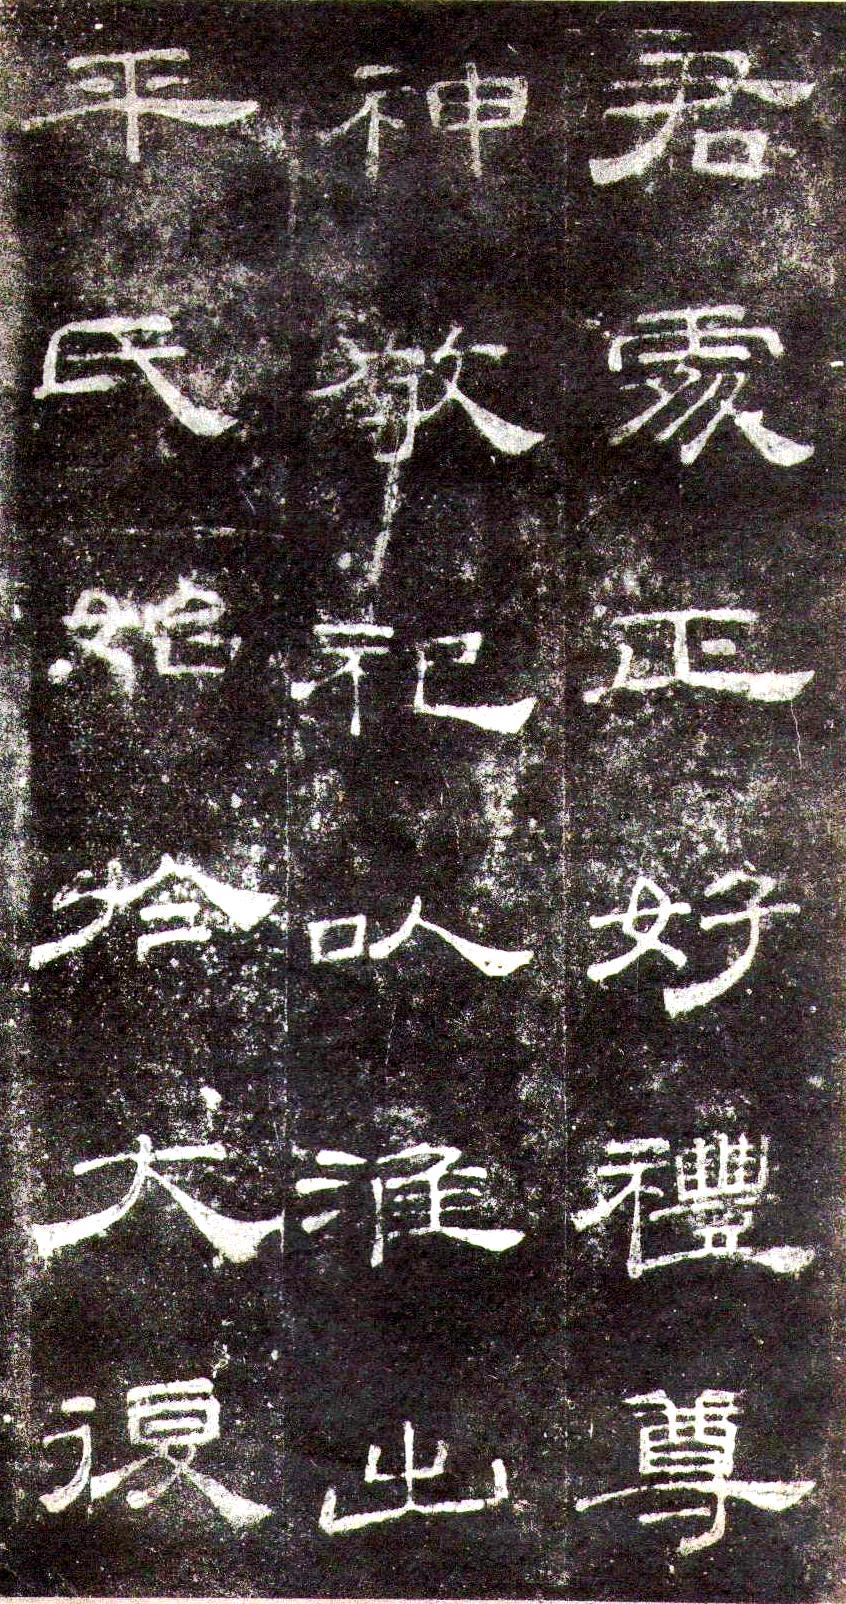 君處正好禮尊
神敬祀以淮出
平氏始於大復